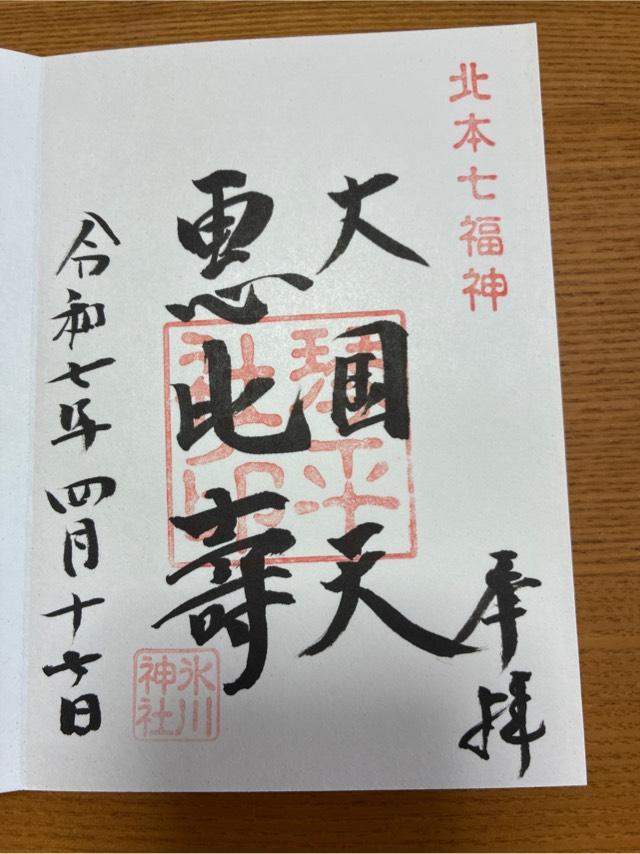 北本七福神
奉拝
大国天
恵比寿
琴平
社印
氷川
神社
令和七年四月十七日